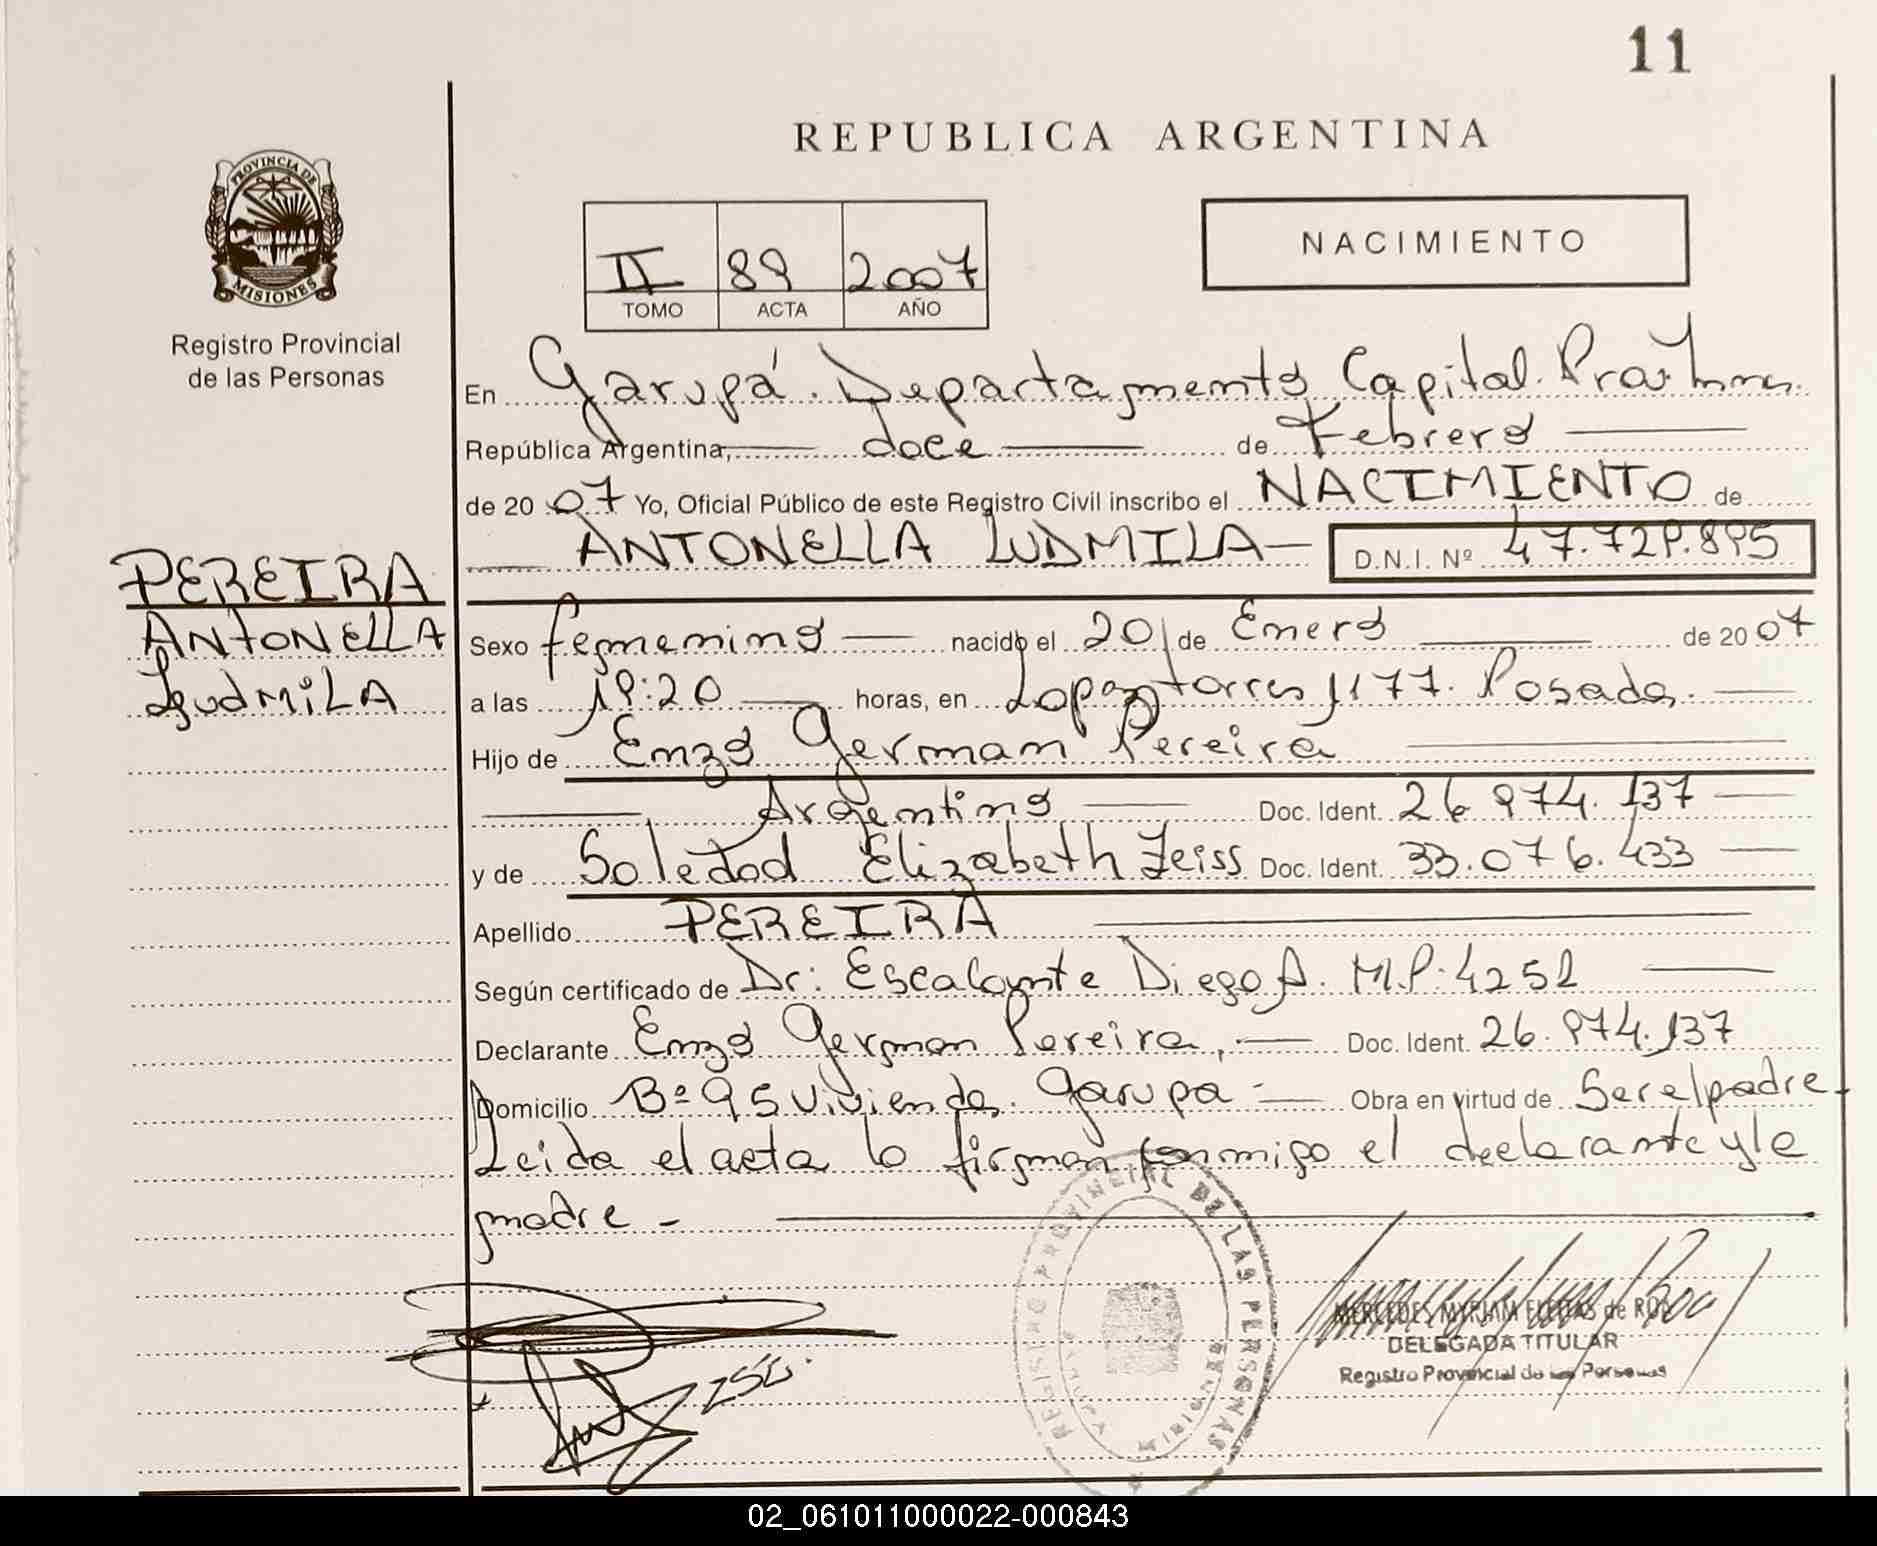 11
REPUBLICA ARGENTINA
PROVINCIA DE
MISIONES
Registro Provincial
de las Personas
II 89 2007
TOMO ACTA AÑO
NACIMIENTO
En Garupá. Departamento Capital.
República Argentina, doce de Febrero
de 20 07 Yo, Oficial Público de este Registro Civil inscribo el NACIMIENTO de
ANTONELLA LUDMILA D.N.I. Nº 47.729.895
PEREIRA
ANTONELLA
LUDMILA
Sexo femenino nacido el 20 de Enero de 20 07
a las 19:20 horas, en Lopez torres 1177. Posadas.
Hijo de Enzo German Pereira
Argentino Doc. Ident. 26.974.137
y de Soledad Elizabeth Zeiss Doc. Ident. 33.076.433
Apellido PEREIRA
Según certificado de Dr: Escalante Diego A. M.P: 4252
Declarante Enzo German Pereira, Doc. Ident. 26.974.137
Domicilio Bº 95 Viviendas. Garupa - Obra en virtud de Ser el padre
Leida el acta lo firman conmigo el declarante y la
madre -
REGISTRO PROVINCIAL DE LAS PERSONAS
MERCEDES MYRIAM FLEITAS de ROA
DELEGADA TITULAR
Registro Provincial de las Personas
02_061011000022-000843